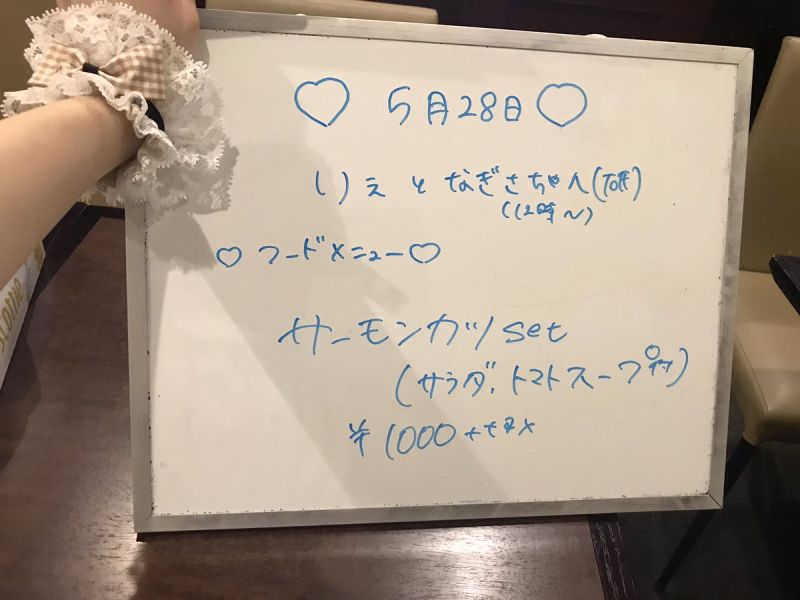 ♡ 5月28日 ♡
りえ と なぎさちゃん
(12時〜)
♡ フードメニュー ♡
サーモンカツset
(サラダ、トマトスープ付)
¥1000+tax